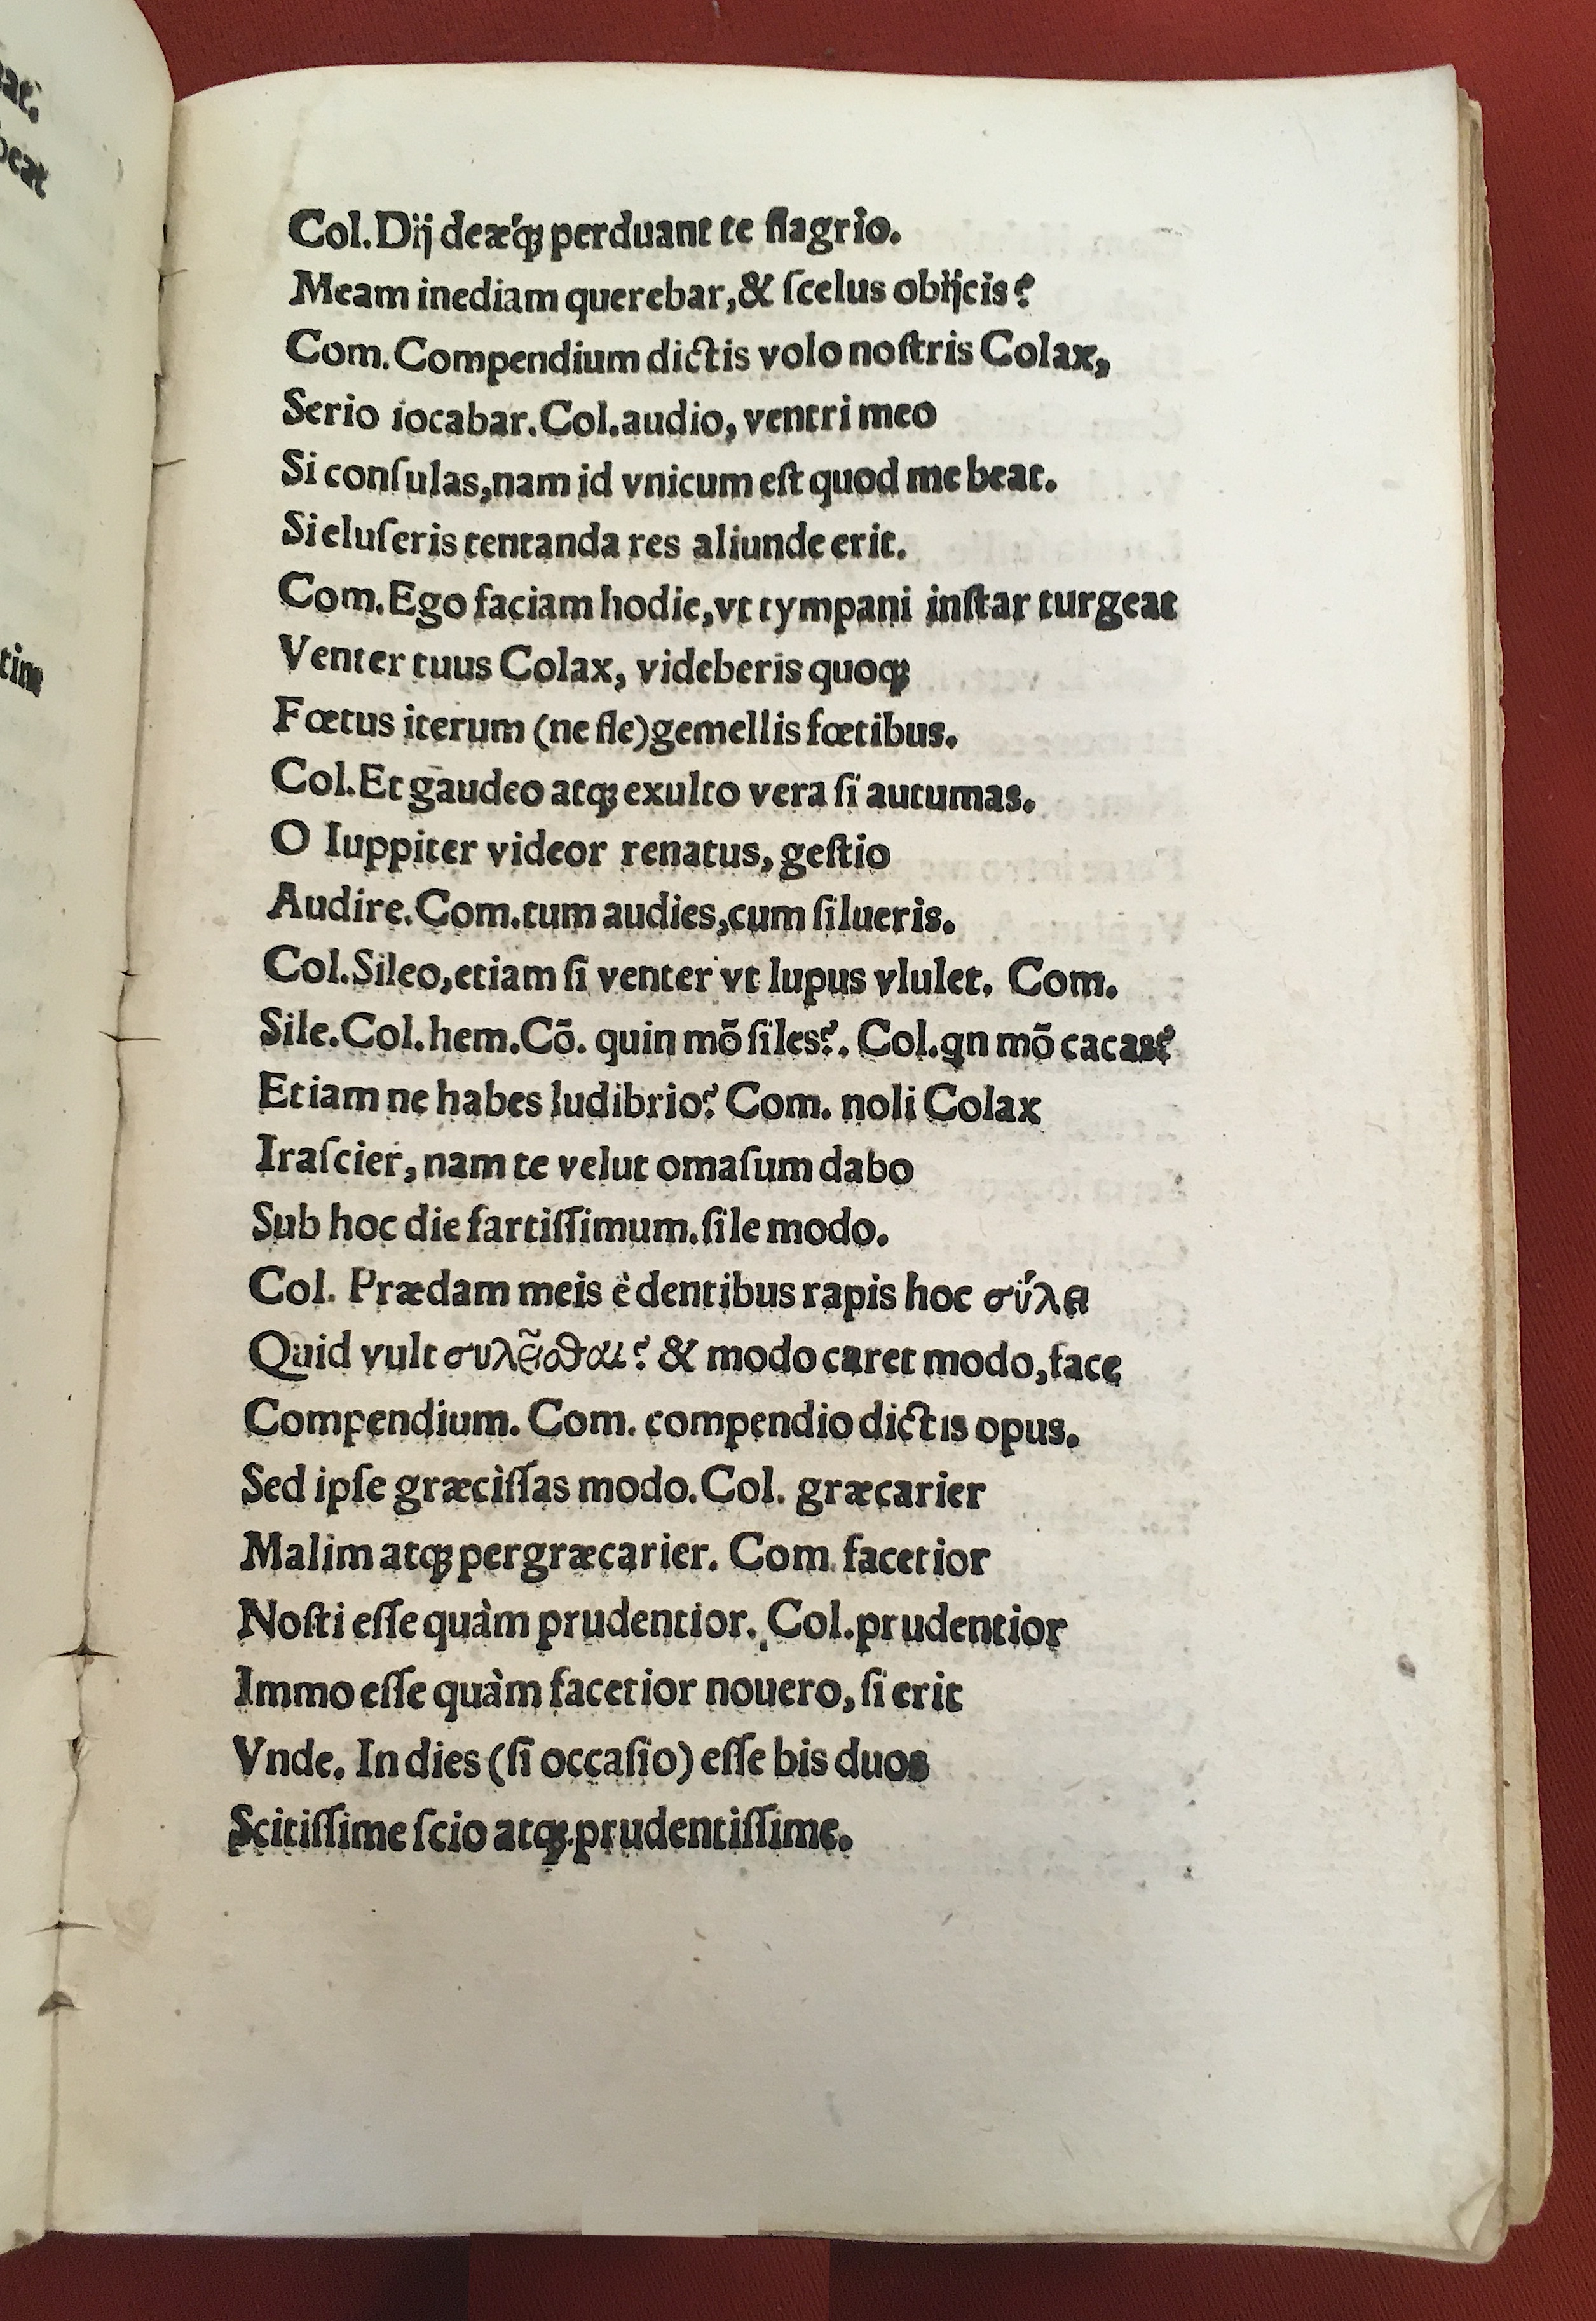 eat.
beat
tim
Col. Dij deǽqꝫ perduant te flagrio.
Meam inediam querebar, & ſcelus obijcis?
Com. Compendium dictis volo noſtris Colax,
Serio iocabar. Col. audio, ventri meo
Si conſulas, nam id vnicum eſt quod me beat.
Si eluſeris tentanda res aliunde erit.
Com. Ego faciam hodie, vt tympani inſtar turgeat
Venter tuus Colax, videberis quoqꝫ
Fœtus iterum (ne fle) gemellis fœtibus.
Col. Et gaudeo atqꝫ exulto vera ſi autumas.
O Iuppiter videor renatus, geſtio
Audire. Com. tum audies, cum ſilueris.
Col. Sileo, etiam ſi venter vt lupus vlulet. Com.
Sile. Col. hem. Cõ. quin mõ ſiles?. Col. qn mõ cacas?
Etiam ne habes ludibrio? Com. noli Colax
Iraſcier, nam te velut omaſum dabo
Sub hoc die fartiſſimum. ſile modo.
Col. Prædam meis è dentibus rapis hoc σύλα
Quid vult συλεῖσθαι? & modo caret modo, face
Compendium. Com. compendio dictis opus.
Sed ipſe græciſſas modo. Col. græcarier
Malim atqꝫ pergræcarier. Com facetior
Noſti eſſe quàm prudentior. Col. prudentior
Immo eſſe quàm facetior nouero, ſi erit
Vnde. In dies (ſi occaſio) eſſe bis duos
Scitiſſime ſcio atqꝫ prudentiſſime.